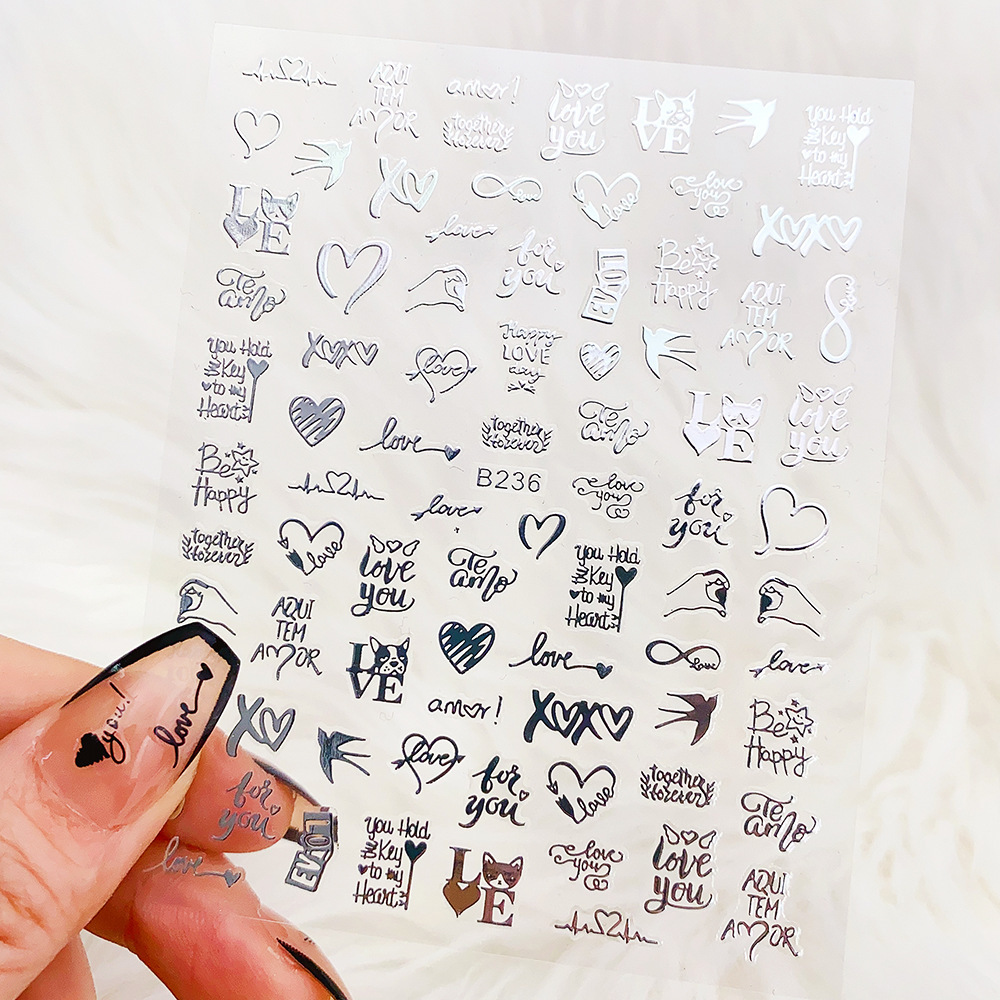 AQUI
TEM
AMOR
amor!
together
forever
love
you
LOVE
You Hold
the Key
to my
Heart
XO
love
love
love
you
XOXO
LOVE
love
for
you
LOVE
Be
Happy
Te
amo
AQUI
TEM
AMOR
love
You Hold
the Key
to my
Heart
XOXO
love
Happy
LOVE
day
Te
amo
LOVE
love
you
love
together
forever
Be
Happy
B236
love
you
for
you
love
together
forever
love
love
you
Te
amo
You Hold
the Key
to my
Heart
AQUI
TEM
AMOR
LOVE
love
love
love
you!
love
XO
amor!
XOXO
Be
Happy
love
for
you
love
together
forever
Te
amo
for
you
love
LOVE
You Hold
the Key
to my
Heart
LOVE
love
you
love
you
AQUI
TEM
AMOR